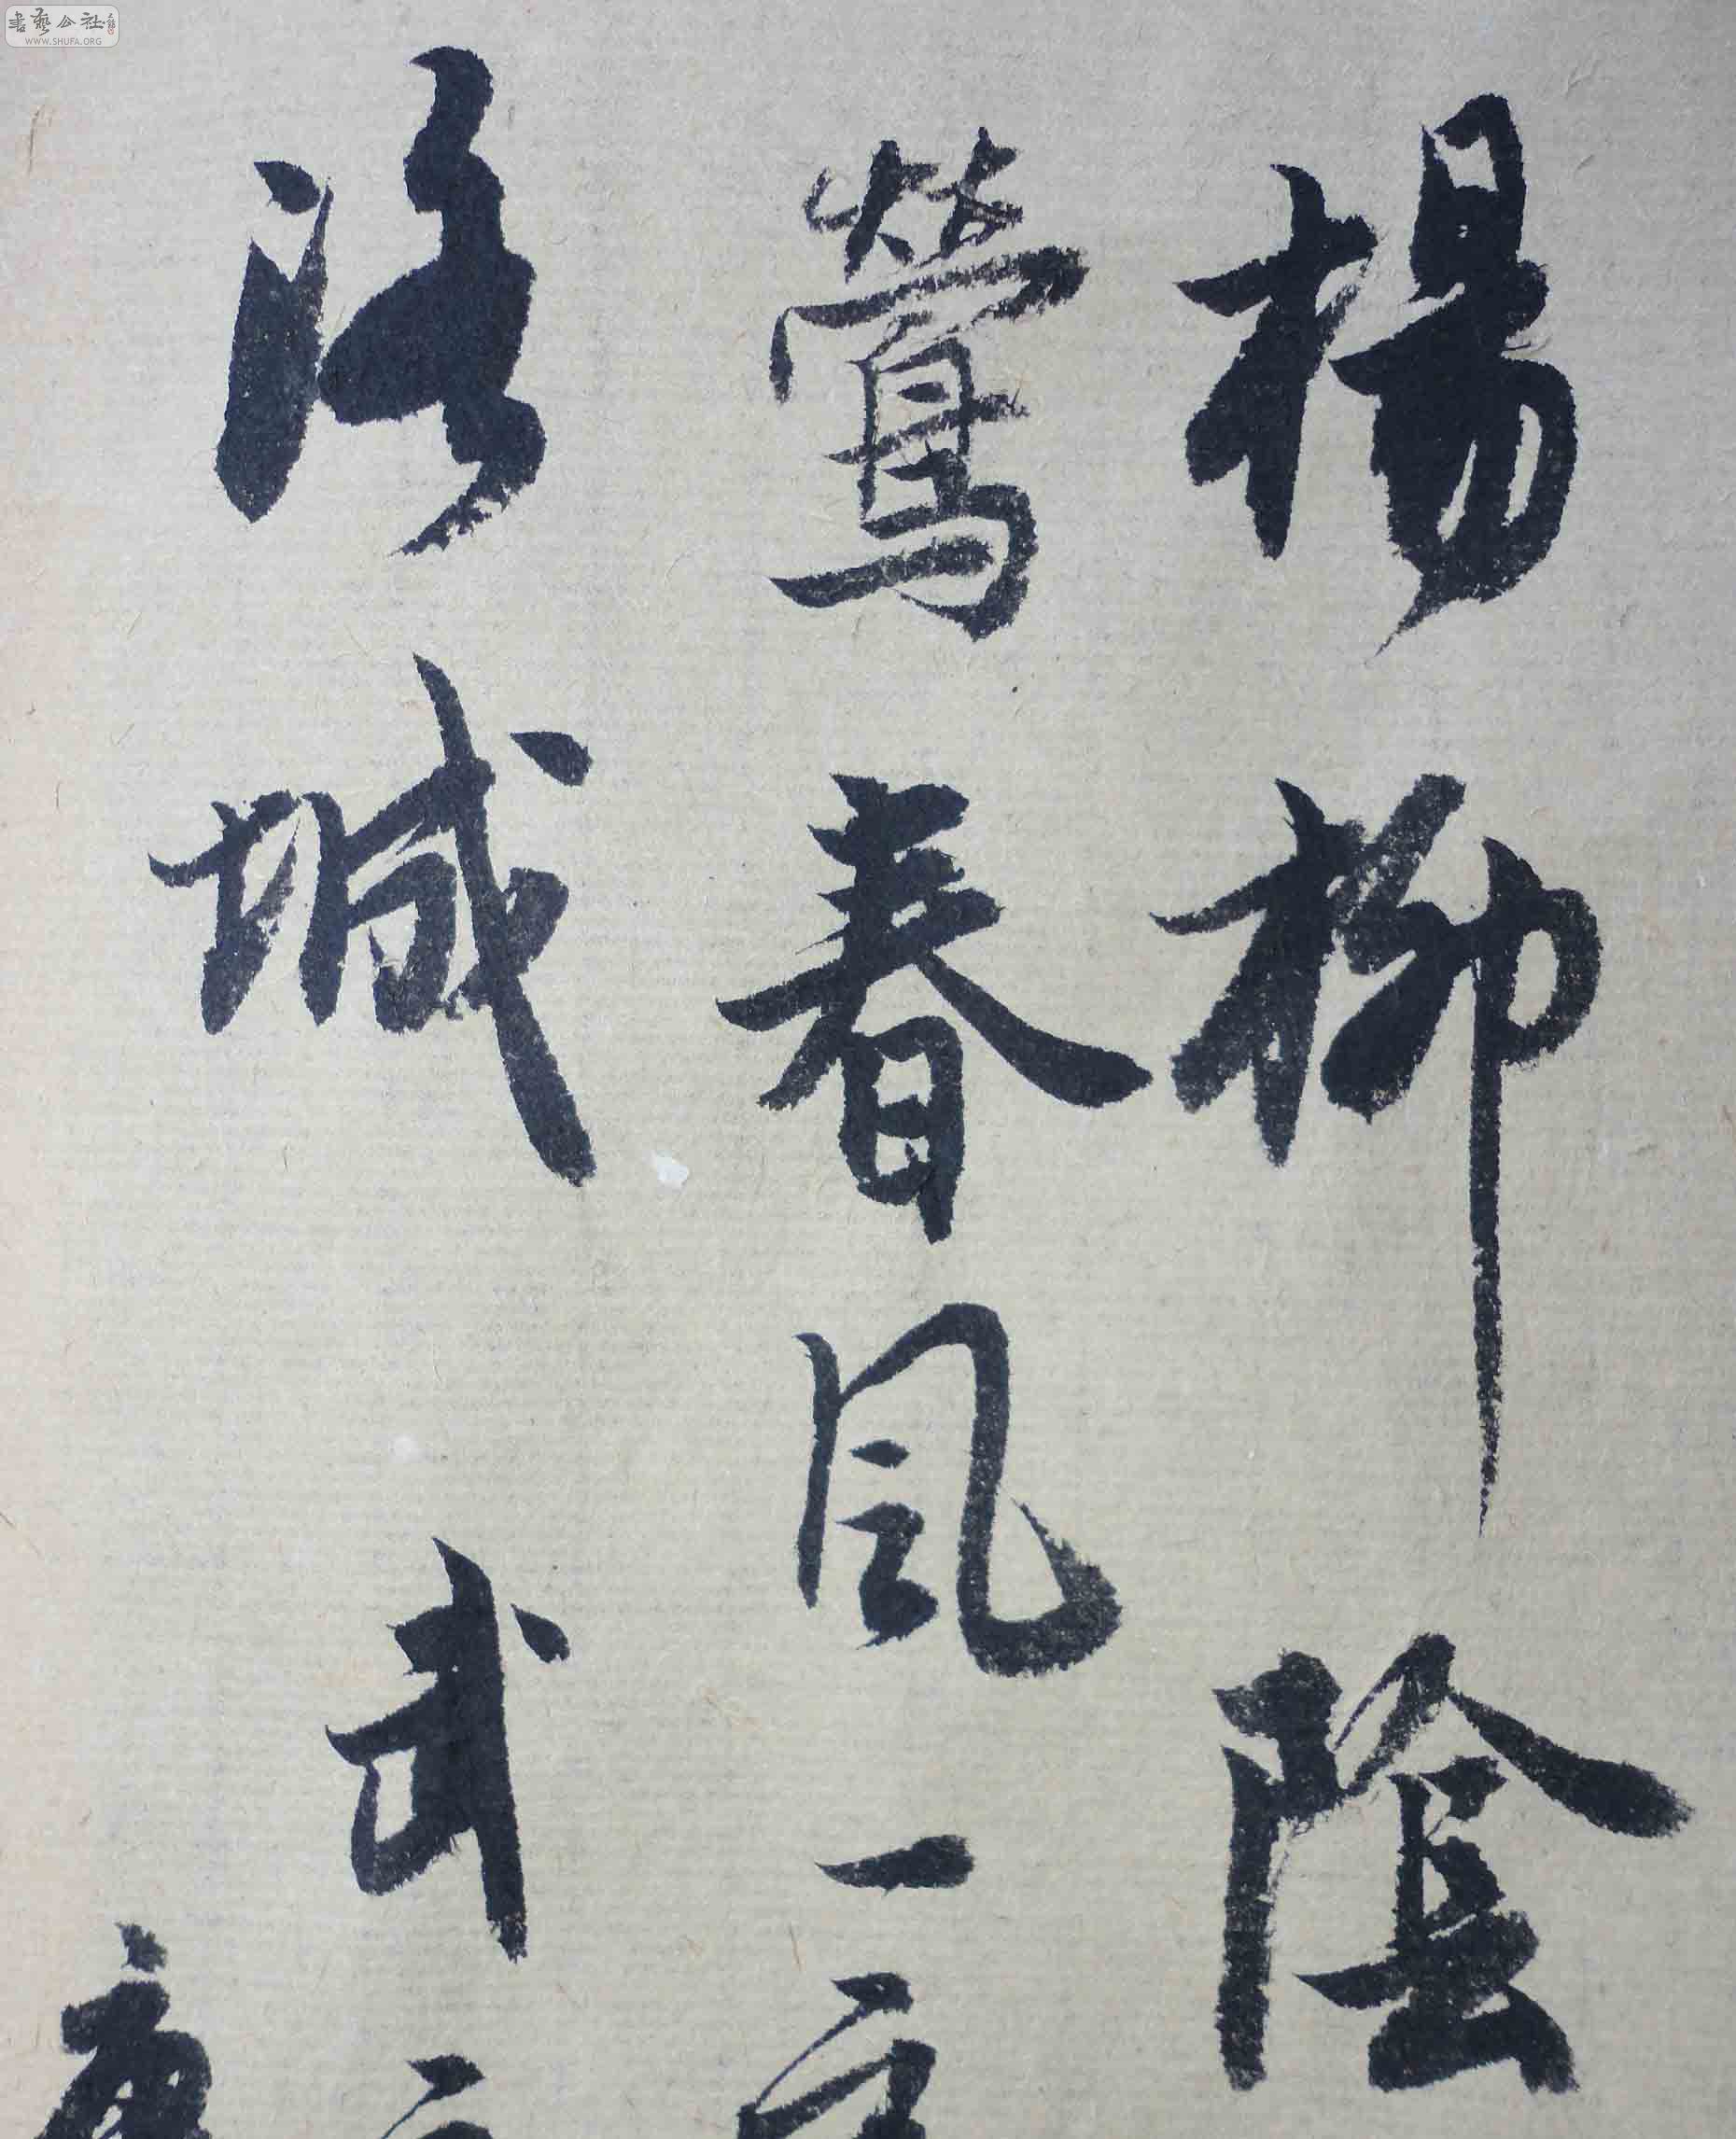 書藝公社
WWW.SHUFA.ORG
楊柳陰
鶯春風一
洛城 武